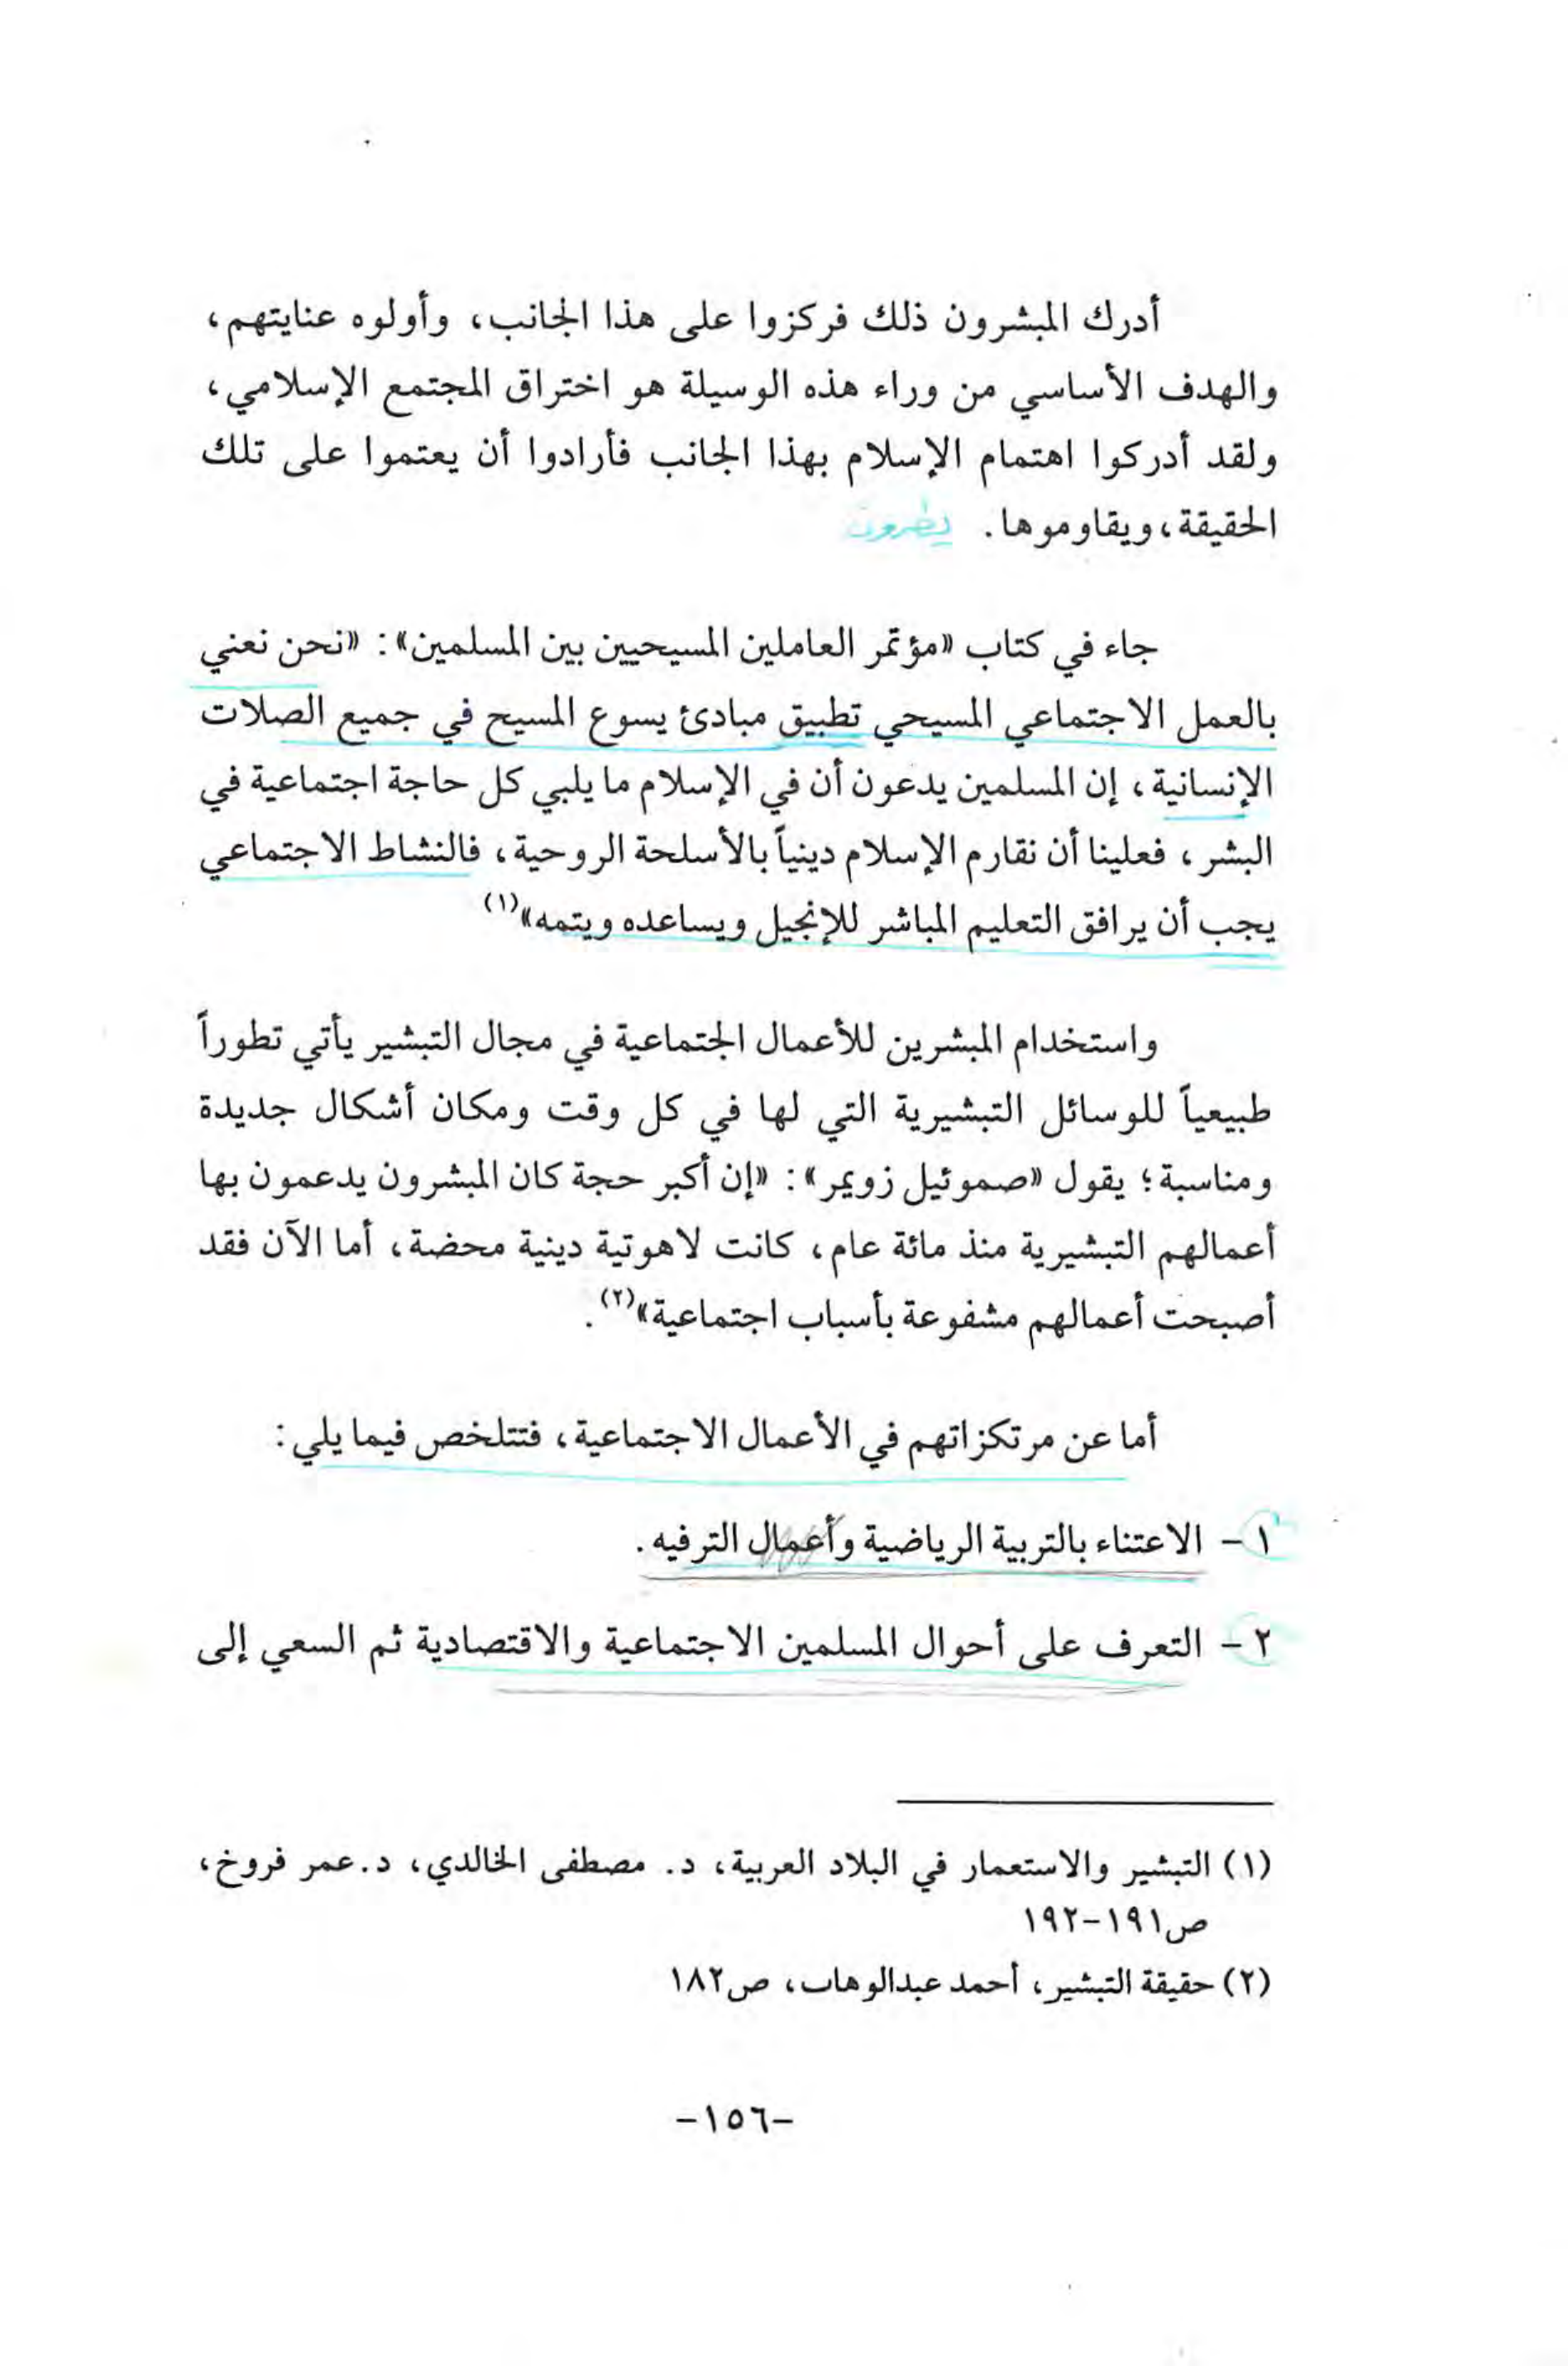 أدرك المبشرون ذلك فركزوا على هذا الجانب، وأولوه عنايتهم،
والهدف الأساسي من وراء هذه الوسيلة هو اختراق المجتمع الإسلامي،
ولقد أدركوا اهتمام الإسلام بهذا الجانب فأرادوا أن يعتموا على تلك
الحقيقة، ويقاوموها.
جاء في كتاب «مؤتمر العاملين المسيحيين بين المسلمين»: «نحن نعني
بالعمل الاجتماعي المسيحي تطبيق مبادئ يسوع المسيح في جميع الصلات
الإنسانية، إن المسلمين يدعون أن في الإسلام ما يلبي كل حاجة اجتماعية في
البشر، فعلينا أن نقارم الإسلام دينياً بالأسلحة الروحية، فالنشاط الاجتماعي
يجب أن يرافق التعليم المباشر للإنجيل ويساعده ويتمه»(١)
واستخدام المبشرين للأعمال الجتماعية في مجال التبشير يأتي تطوراً
طبيعياً للوسائل التبشيرية التي لها في كل وقت ومكان أشكال جديدة
ومناسبة؛ يقول «صموئيل زويمر»: «إن أكبر حجة كان المبشرون يدعمون بها
أعمالهم التبشيرية منذ مائة عام، كانت لاهوتية دينية محضة، أما الآن فقد
أصبحت أعمالهم مشفوعة بأسباب اجتماعية»(٢).
أما عن مرتكزاتهم في الأعمال الاجتماعية، فتتلخص فيما يلي:
١ - الاعتناء بالتربية الرياضية وأعمال الترفيه.
٢ - التعرف على أحوال المسلمين الاجتماعية والاقتصادية ثم السعي إلى
(١) التبشير والاستعمار في البلاد العربية، د. مصطفى الخالدي، د.عمر فروخ،
ص١٩١-١٩٢
(٢) حقيقة التبشير، أحمد عبدالوهاب، ص١٨٢
-١٥٦-